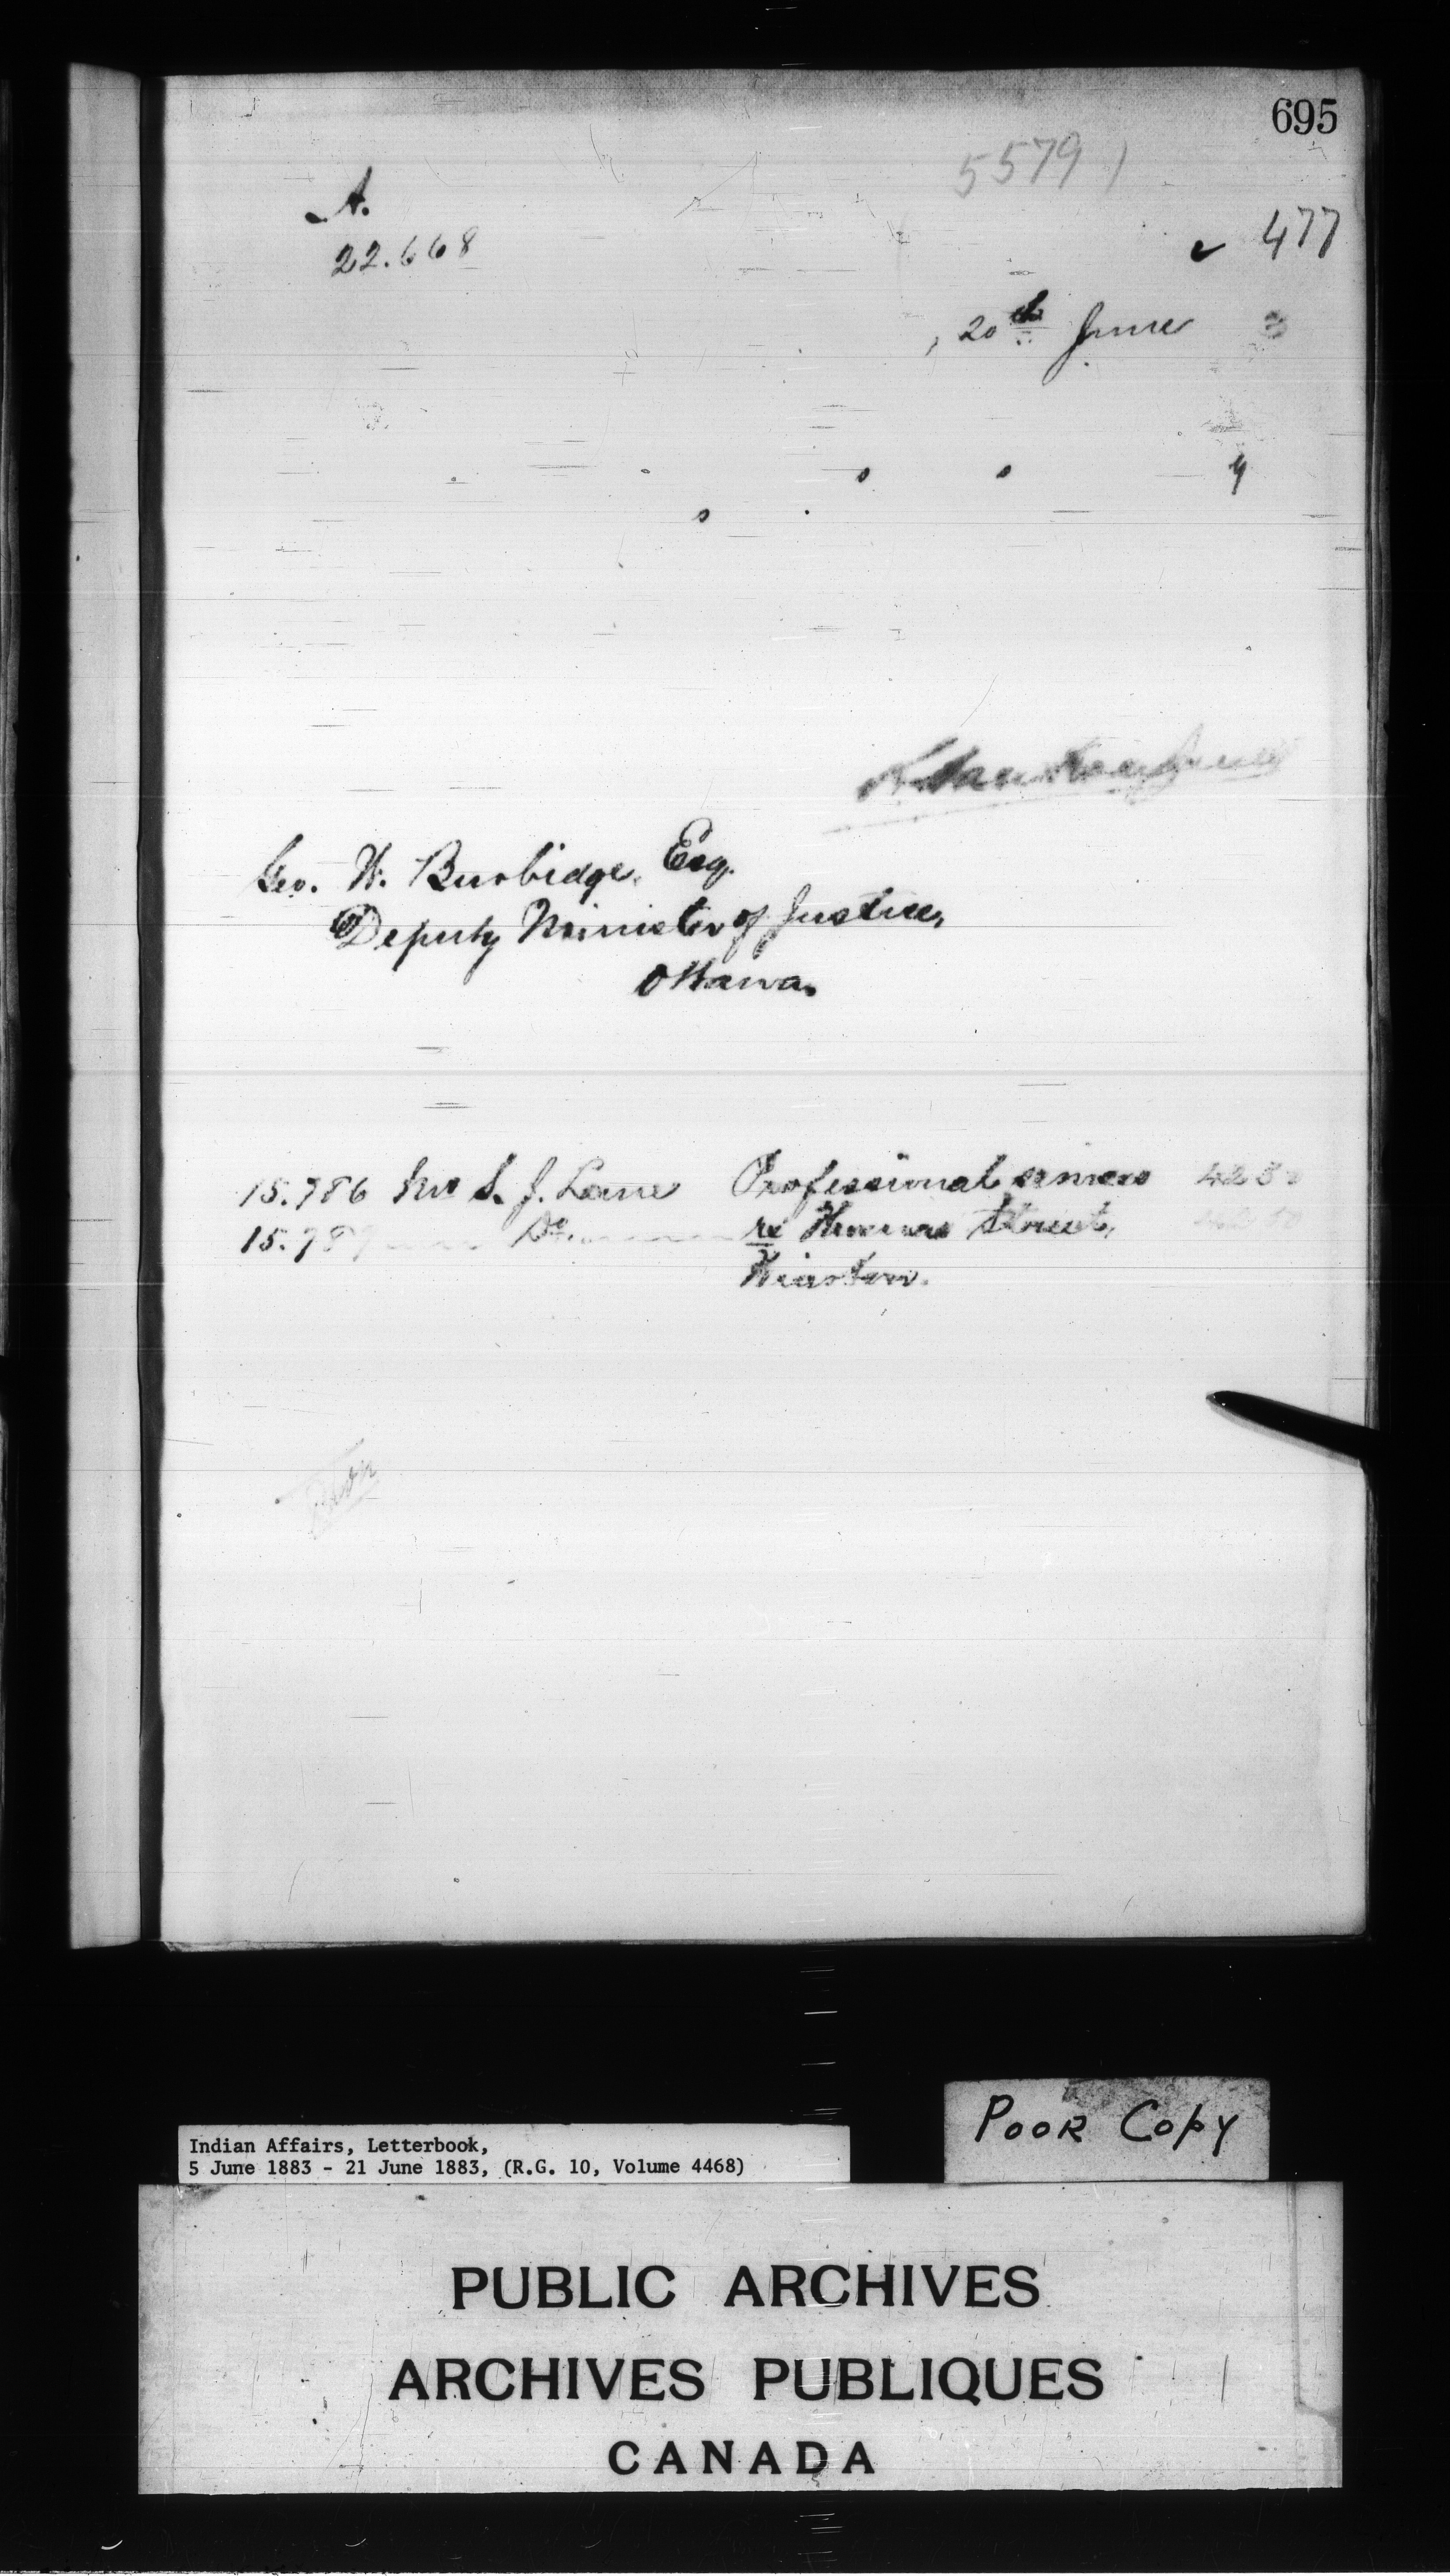 695
5579
A.
22.668
477
20th June 3
Geo. W. Burbidge, Esq.
Deputy Minister of Justice,
Ottawa.
15.786 Mr S. J. Lane Professional services 42 50
15.78 Do. re Street,
POOR COPY
Indian Affairs, Letterbook,
5 June 1883 - 21 June 1883, (R.G. 10, Volume 4468)
PUBLIC ARCHIVES
ARCHIVES PUBLIQUES
CANADA